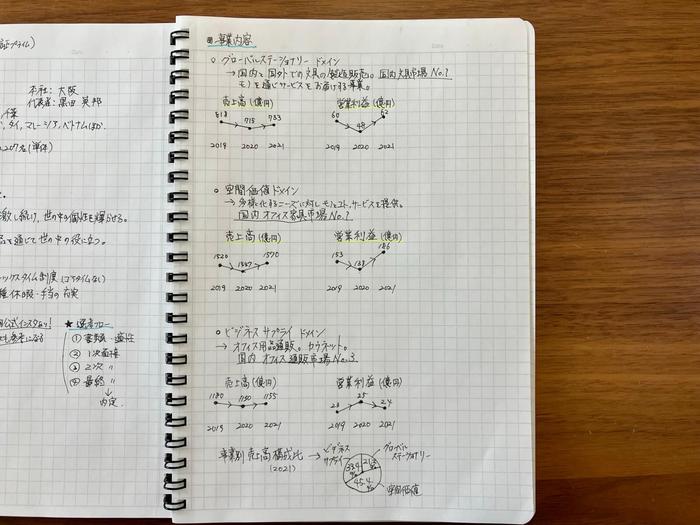 証プライム)
本社: 大阪
代表者: 黒田 英邦
千葉
タイ, マレーシア, ベトナムほか
207名(単体)
激し続け, 世の中の個性を輝かせる。
を通じて世の中の役に立つ。
ックスタイム制度 (コアタイムなし)
種休暇・手当の充実
公式インスタより!
も参考になる
★ 選考フロー
① 書類・適性
② 1次面接
③ 2次 〃
④ 最終 〃
↓
内定.
事業内容
○ グローバルステーショナリー ドメイン
→ 国内と国外での文具の製造販売。国内文具市場 No.1
モノを通じサービスをお届けする事業。
売上高(億円) 営業利益(億円)
818 715 733 60 48 62
2019 2020 2021 2019 2020 2021
○ 空間価値ドメイン
→ 多様化するニーズに対しモノとコト, サービスを提供。
国内オフィス家具市場 No.1
売上高(億円) 営業利益(億円)
1520 1570 153 138 186
2019 2020 2021 2019 2020 2021
○ ビジネス サプライ ドメイン
→ オフィス用品通販。カウネット。
国内 オフィス通販市場 No.3
売上高(億円) 営業利益(億円)
1180 1150 1155 23 25 24
2019 2020 2021 2019 2020 2021
事業別売上高構成比 →
(2021)
ビジネス
サプライ
33.4
%
グローバル
ステーショナリー
21.2
%
45.4
%
空間価値